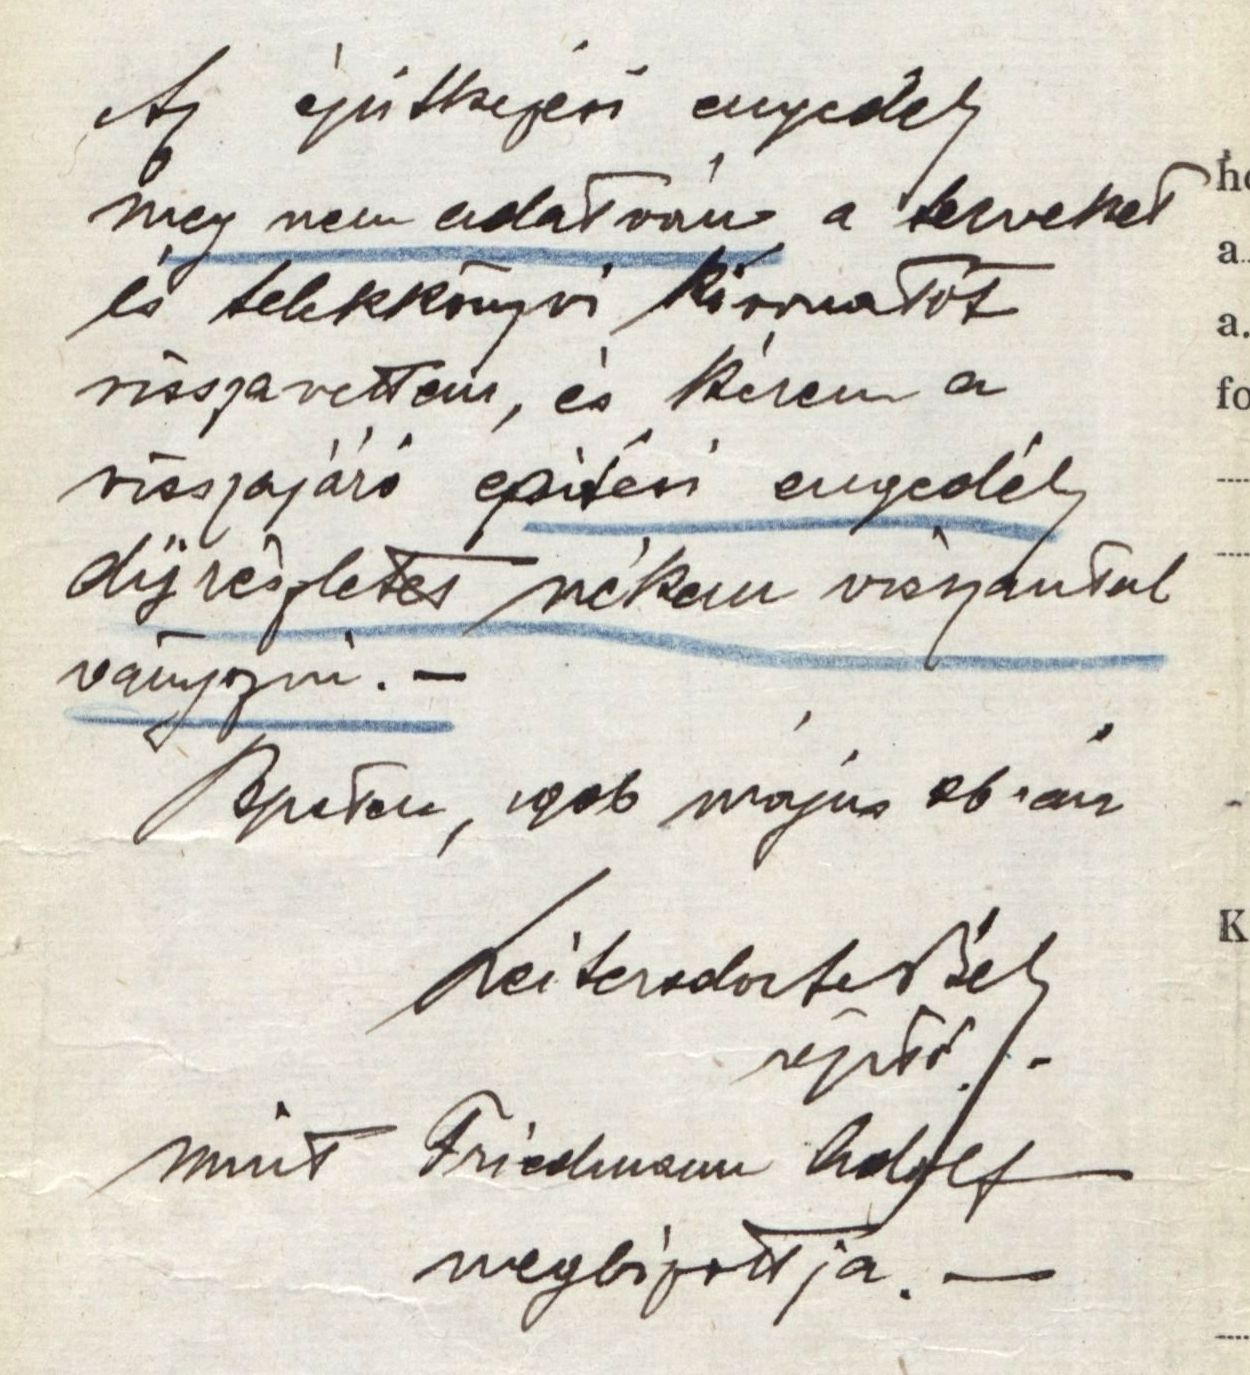 Az épitkezési engedély
meg nem adatván a terveket
és telekkönyvi kivonatot
visszavettem, és kérem a
visszajáró epitési engedély
díjrészletet nékem viszautal
ványozni. —
Bpesten, május án
Béla
építő. -
mint Friedmann Adolf
megbizottja. —
ho
a..
a.
fo
K